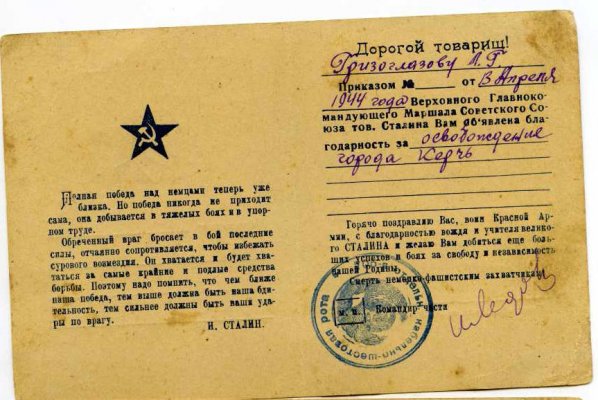 Полная победа над немцами теперь уже
близка. Но победа никогда не приходит
сама, она добывается в тяжелых боях и в упор-
ном труде.
Обреченный враг бросает в бой последние
силы, отчаянно сопротивляется, чтобы избежать
сурового возмездия. Он хватается и будет хва-
таться за самые крайние и подлые средства
борьбы. Поэтому надо помнить, что чем ближе
наша победа, тем выше должна быть наша бди-
тельность, тем сильнее должны быть наши уда-
ры по врагу.
И. СТАЛИН.
Дорогой товарищ!
Гризоглазову Л. Г
Приказом № от 13 Апреля
1944 года Верховного Главноко-
мандующего Маршала Советского Со-
юза тов. Сталина Вам об'явлена бла-
годарность за освобождение
города Керчь
Горячо поздравляю Вас, воин Красной Ар-
мии, с благодарностью вождя и учителя велико-
го СТАЛИНА и желаю Вам добиться еще боль-
ших успехов в боях за свободу и независимость
нашей Родины.
Смерть немецко-фашистским захватчикам!
м. п. Командир части
кабельно-шестовая рота